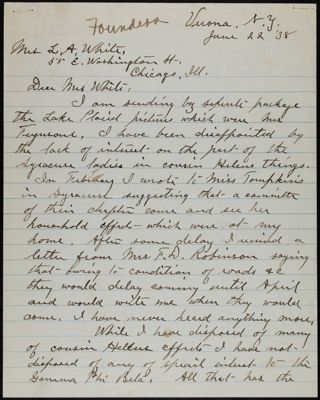 Founders
Verona, N.Y.
June 22 '38
Mrs L. A. White,
55 E. Washington St.
Chicago, Ill.
Dear Mrs White:
I am sending by separate package
the Lake Placid pictures which were Mr
Ferguson's. I have been disappointed by
the lack of interest on the part of the
Syracuse ladies in cousin Helens things.
In February I wrote to Miss Tompkins
in Syracuse suggesting that a committe
of their chapter come and see her
household effects which were at my
home. After some delay I received a
letter from Mrs F. D. Robinson saying
that owing to condition of roads &c
they would delay coming until April
and would write me when they would
come. I have never heard anything more.
While I have disposed of many
of cousin Hellens effects I have not
disposed of any of special interest to the
Gamma Phi Beta. All that has the